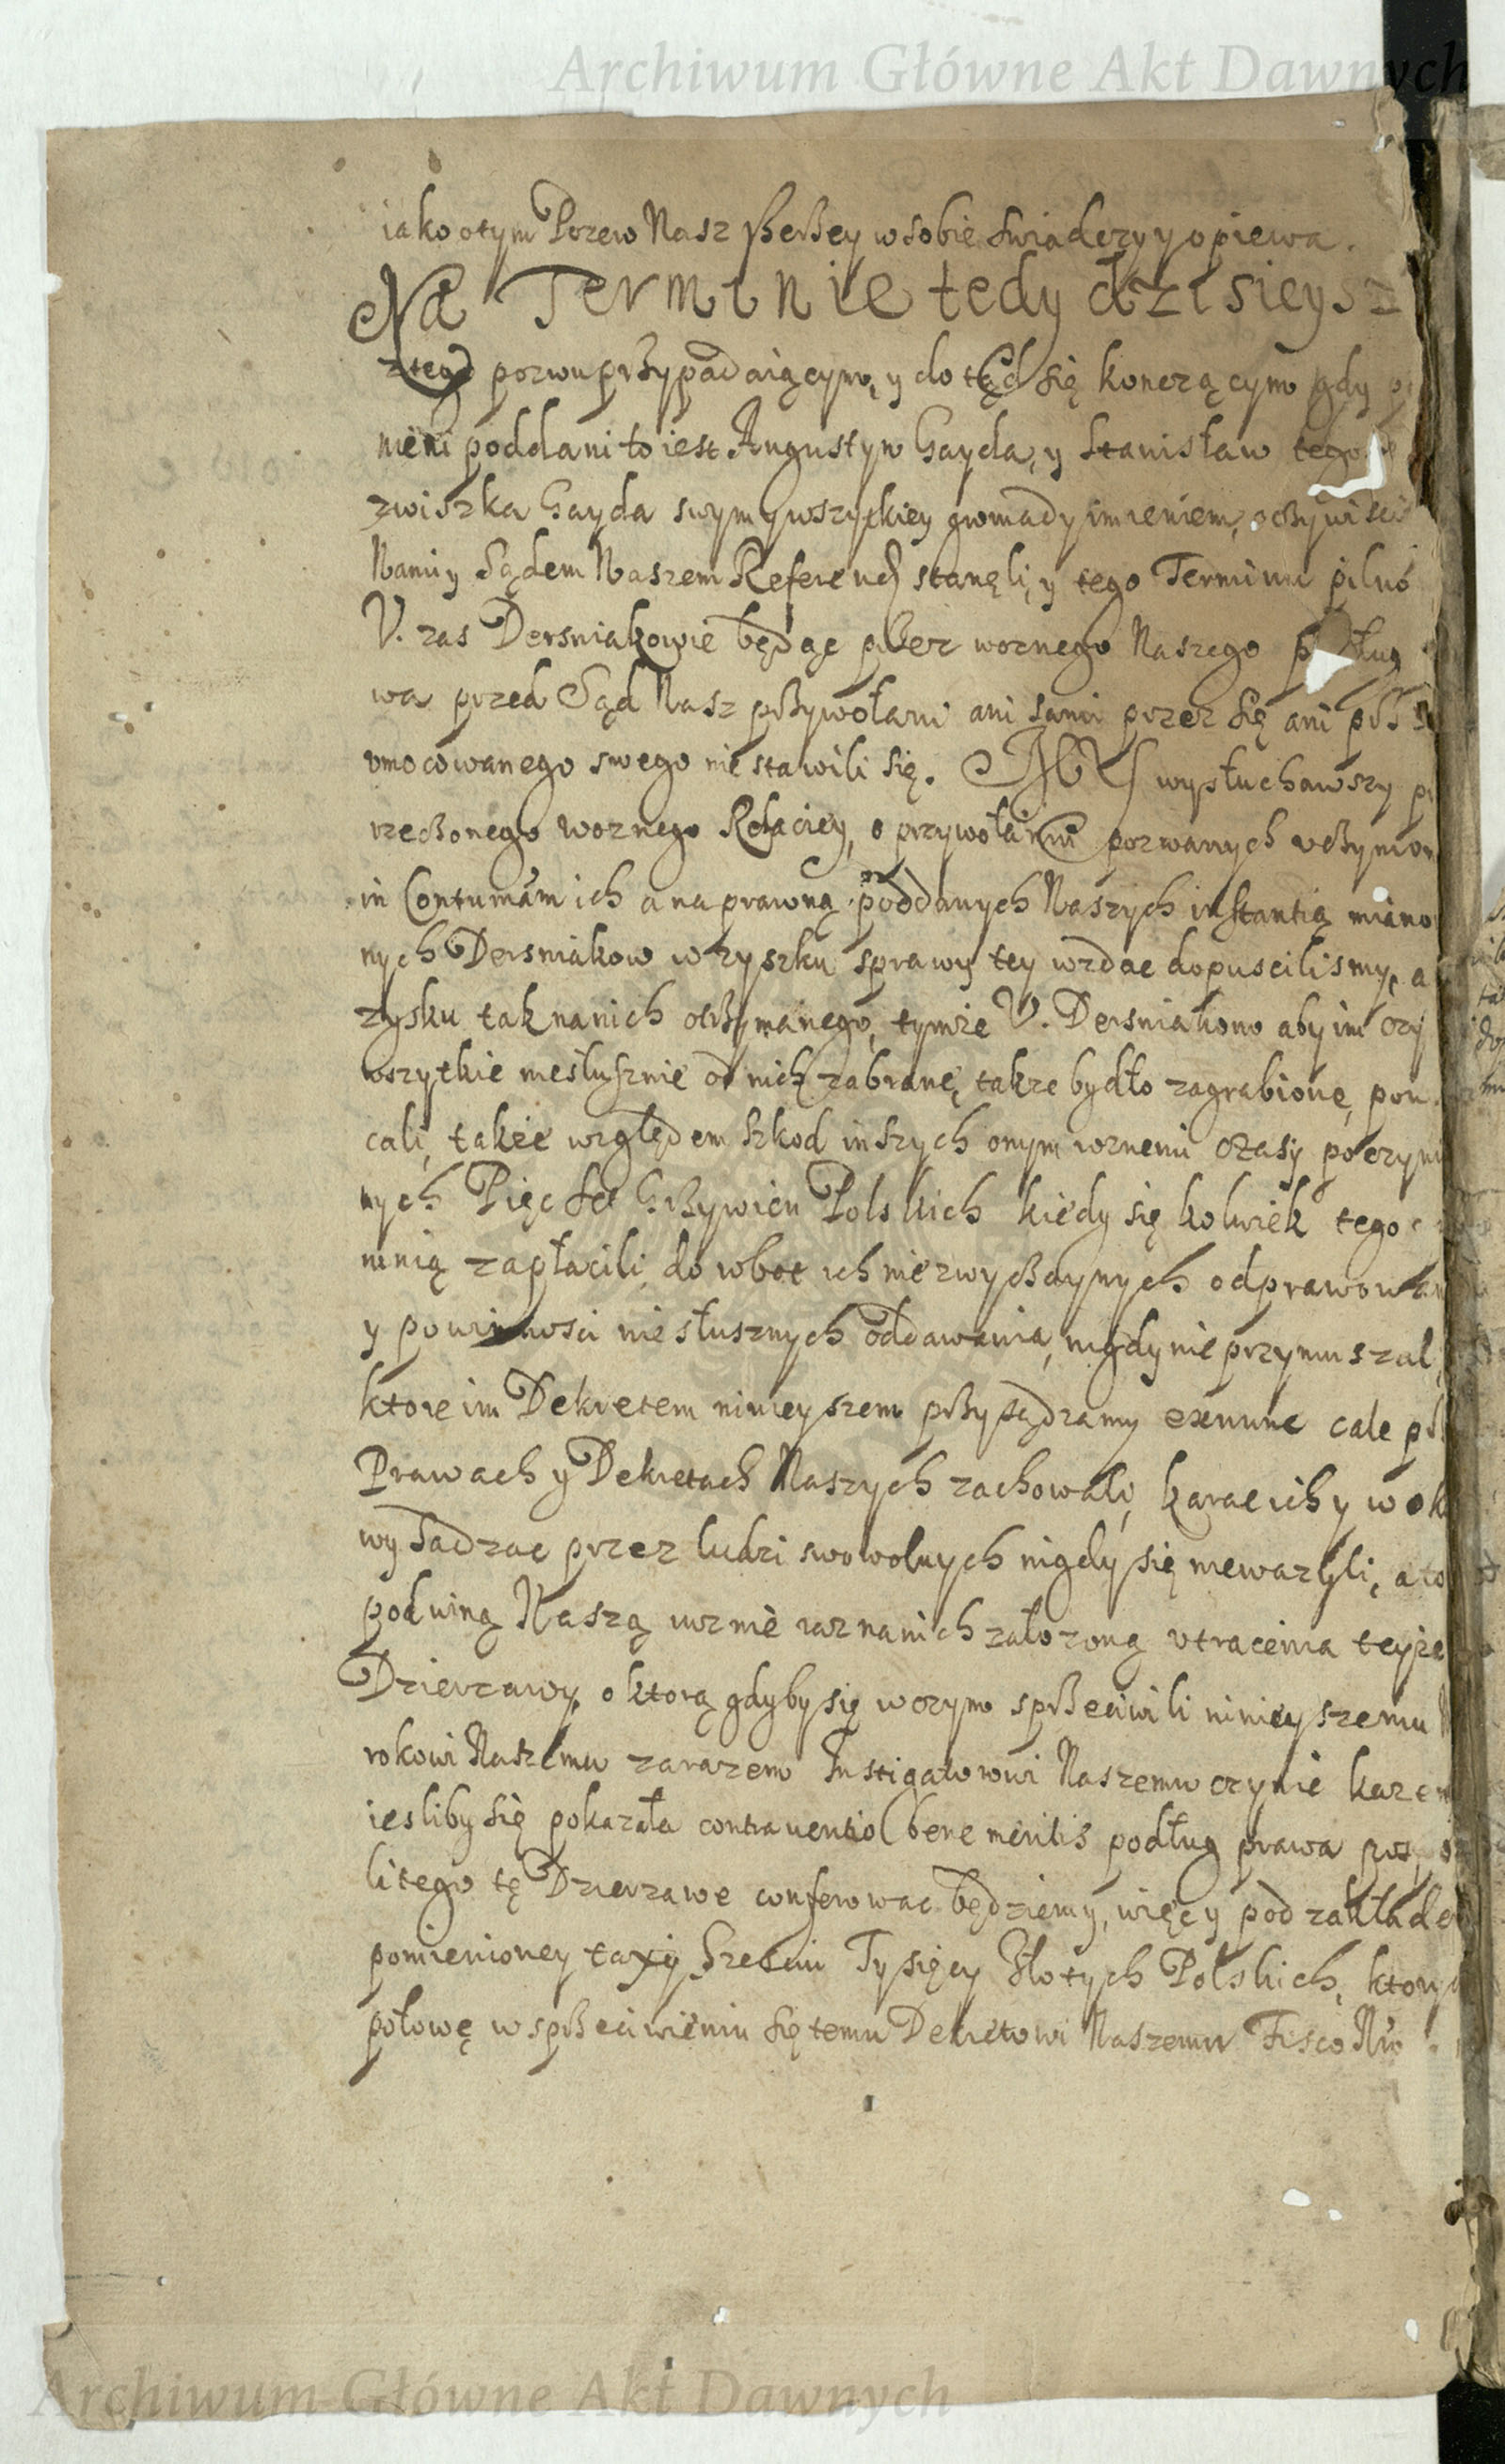 Archiwum Główne Akt Dawnych
iako o tym Pozew Nasz szerszey w sobie swiadczy y opiewa.
Na Terminie tedy dzisieysz
z tego pozwu przypadaiącym, y do tąd się konczącym gdy
nieni poddani to iest Augustyn Gayda, y Stanisław tego
zwiszka Gayda swym y wszytkiey gromady imieniem, oczywisci
Nami y Sądem Naszem Referend stanęli, y tego Terminu pilno
U. zas Dersniakowie będąc przez woznego Naszego podług
wa przed Sąd Nasz przywołani ani sami przez się ani prz
umocowanego swego nie stawili się. MY wysłuchawszy
rzeczonego woznego Relaciey, o przywołaniu pozwanych uczynion
in Contumam ich a na prawną poddanych Naszych instantią miano
nych Dersniakow w zyszku sprawy tey wzdac dopuscilismy, a
zysku tak na nich otrzymanego, tymże U. Dersniakom aby im
wszytkie niesłusznie od nich zabrane, takze bydło zagrabione, pow
cali, także względem szkod inszych onym roznemi czasy poczyni
nych Pięc set Grzywien Polskich kiedy się kolwiek tego
mnią zapłacili, do robot ich niezwyczaynych odprawowan
y powinnosci niesłusznych oddawania, nigdy nie przymuszal
ktore im Dekretem ninieyszem przysądzamy exnunc cale prz
Prawach y Dekretach Naszych zachowali, karac ich y w ok
wy sadzac przez ludzi swowolnych nigdy się niewazyli, a to
pod winą Naszą w roznie na nich załozoną utracenia teyże
Dzierzawy, o ktorą gdyby się w czym sprzeciwili ninieyszemu
rokowi Naszemu zarazem Instigatorowi Naszemu czynic kaze
iesliby się pokazała contraventio bene meritis podług prawa posp
litego tę Dzierzawe conferowac będziemy, więc y pod zakłade
pomienioney taxy Szesciu Tysięcy Złotych Polskich, ktory
połowę w sprzeciwieniu się temu Dekretowi Naszemu Fisco Nro
Archiwum Główne Akt Dawnych